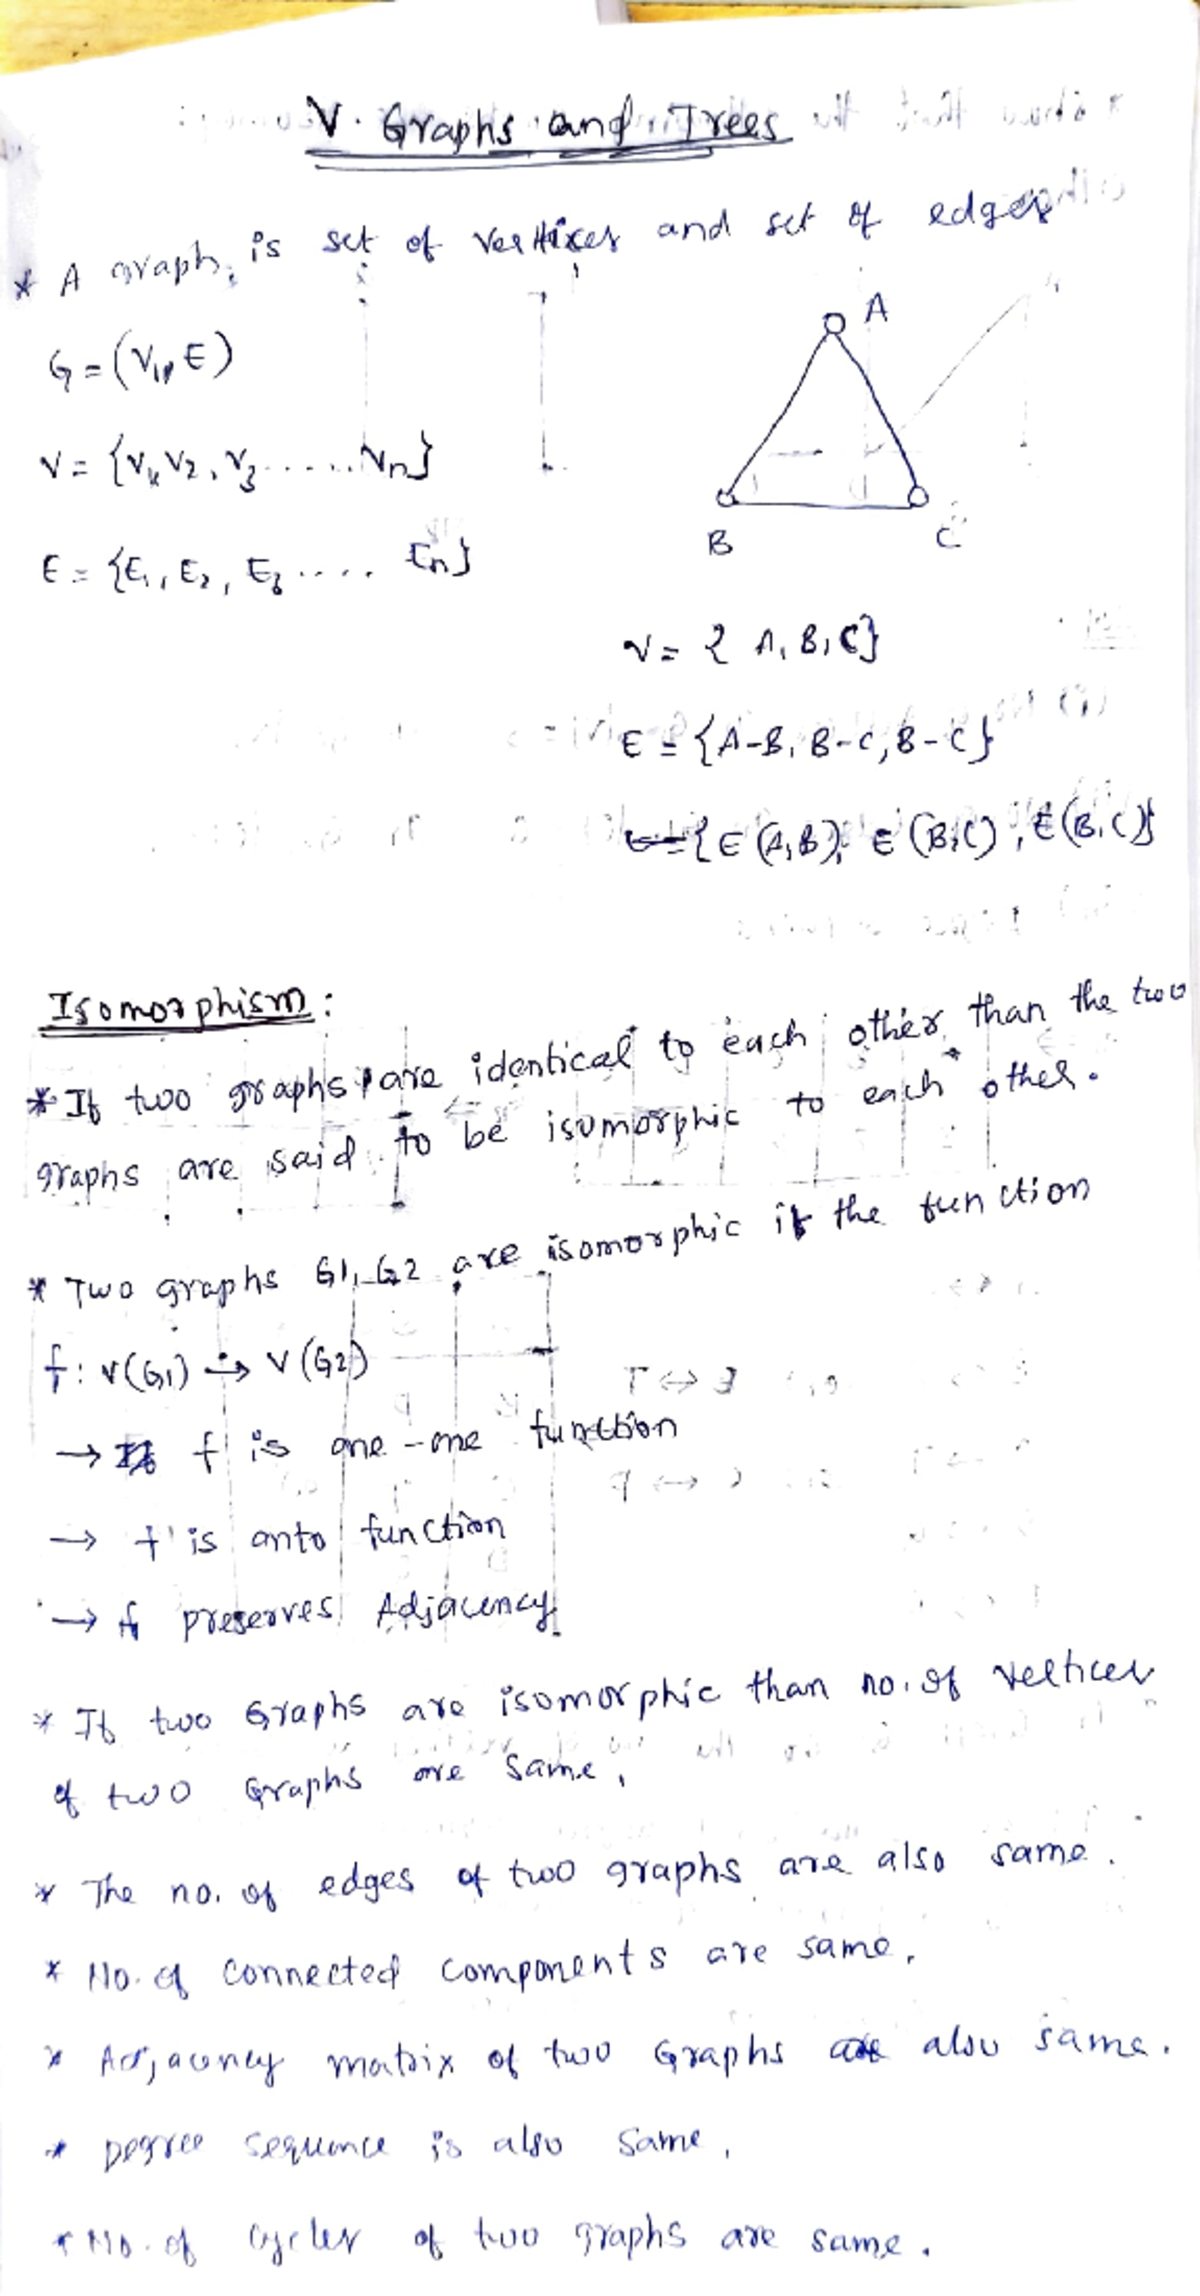 V. Graphs and Trees
* A graph, is set of vertixes and set of edges
G = (V, E)
V = {V1, V2, V3 ...... Vn}
E = {E1, E2, E3 .... En}
A
B
C
V = { A, B, C}
E = {A-B, B-C, B-C}
= {E (A,B), E (B,C), E (B,C)}
Isomorphism:
* If two graphs are identical to each other than the two
graphs are said to be isomorphic to each other.
* Two graphs G1, G2 are isomorphic if the function
f: V(G1) → V(G2)
→ f is one-one function
→ f is onto function
→ f preserves Adjacency
* If two Graphs are isomorphic than no. of vertices
of two Graphs are same,
* The no. of edges of two graphs are also same.
* No. of connected components are same,
* Adjacency matrix of two Graphs are also same.
* Degree sequence is also same,
* No. of cycles of two graphs are same.